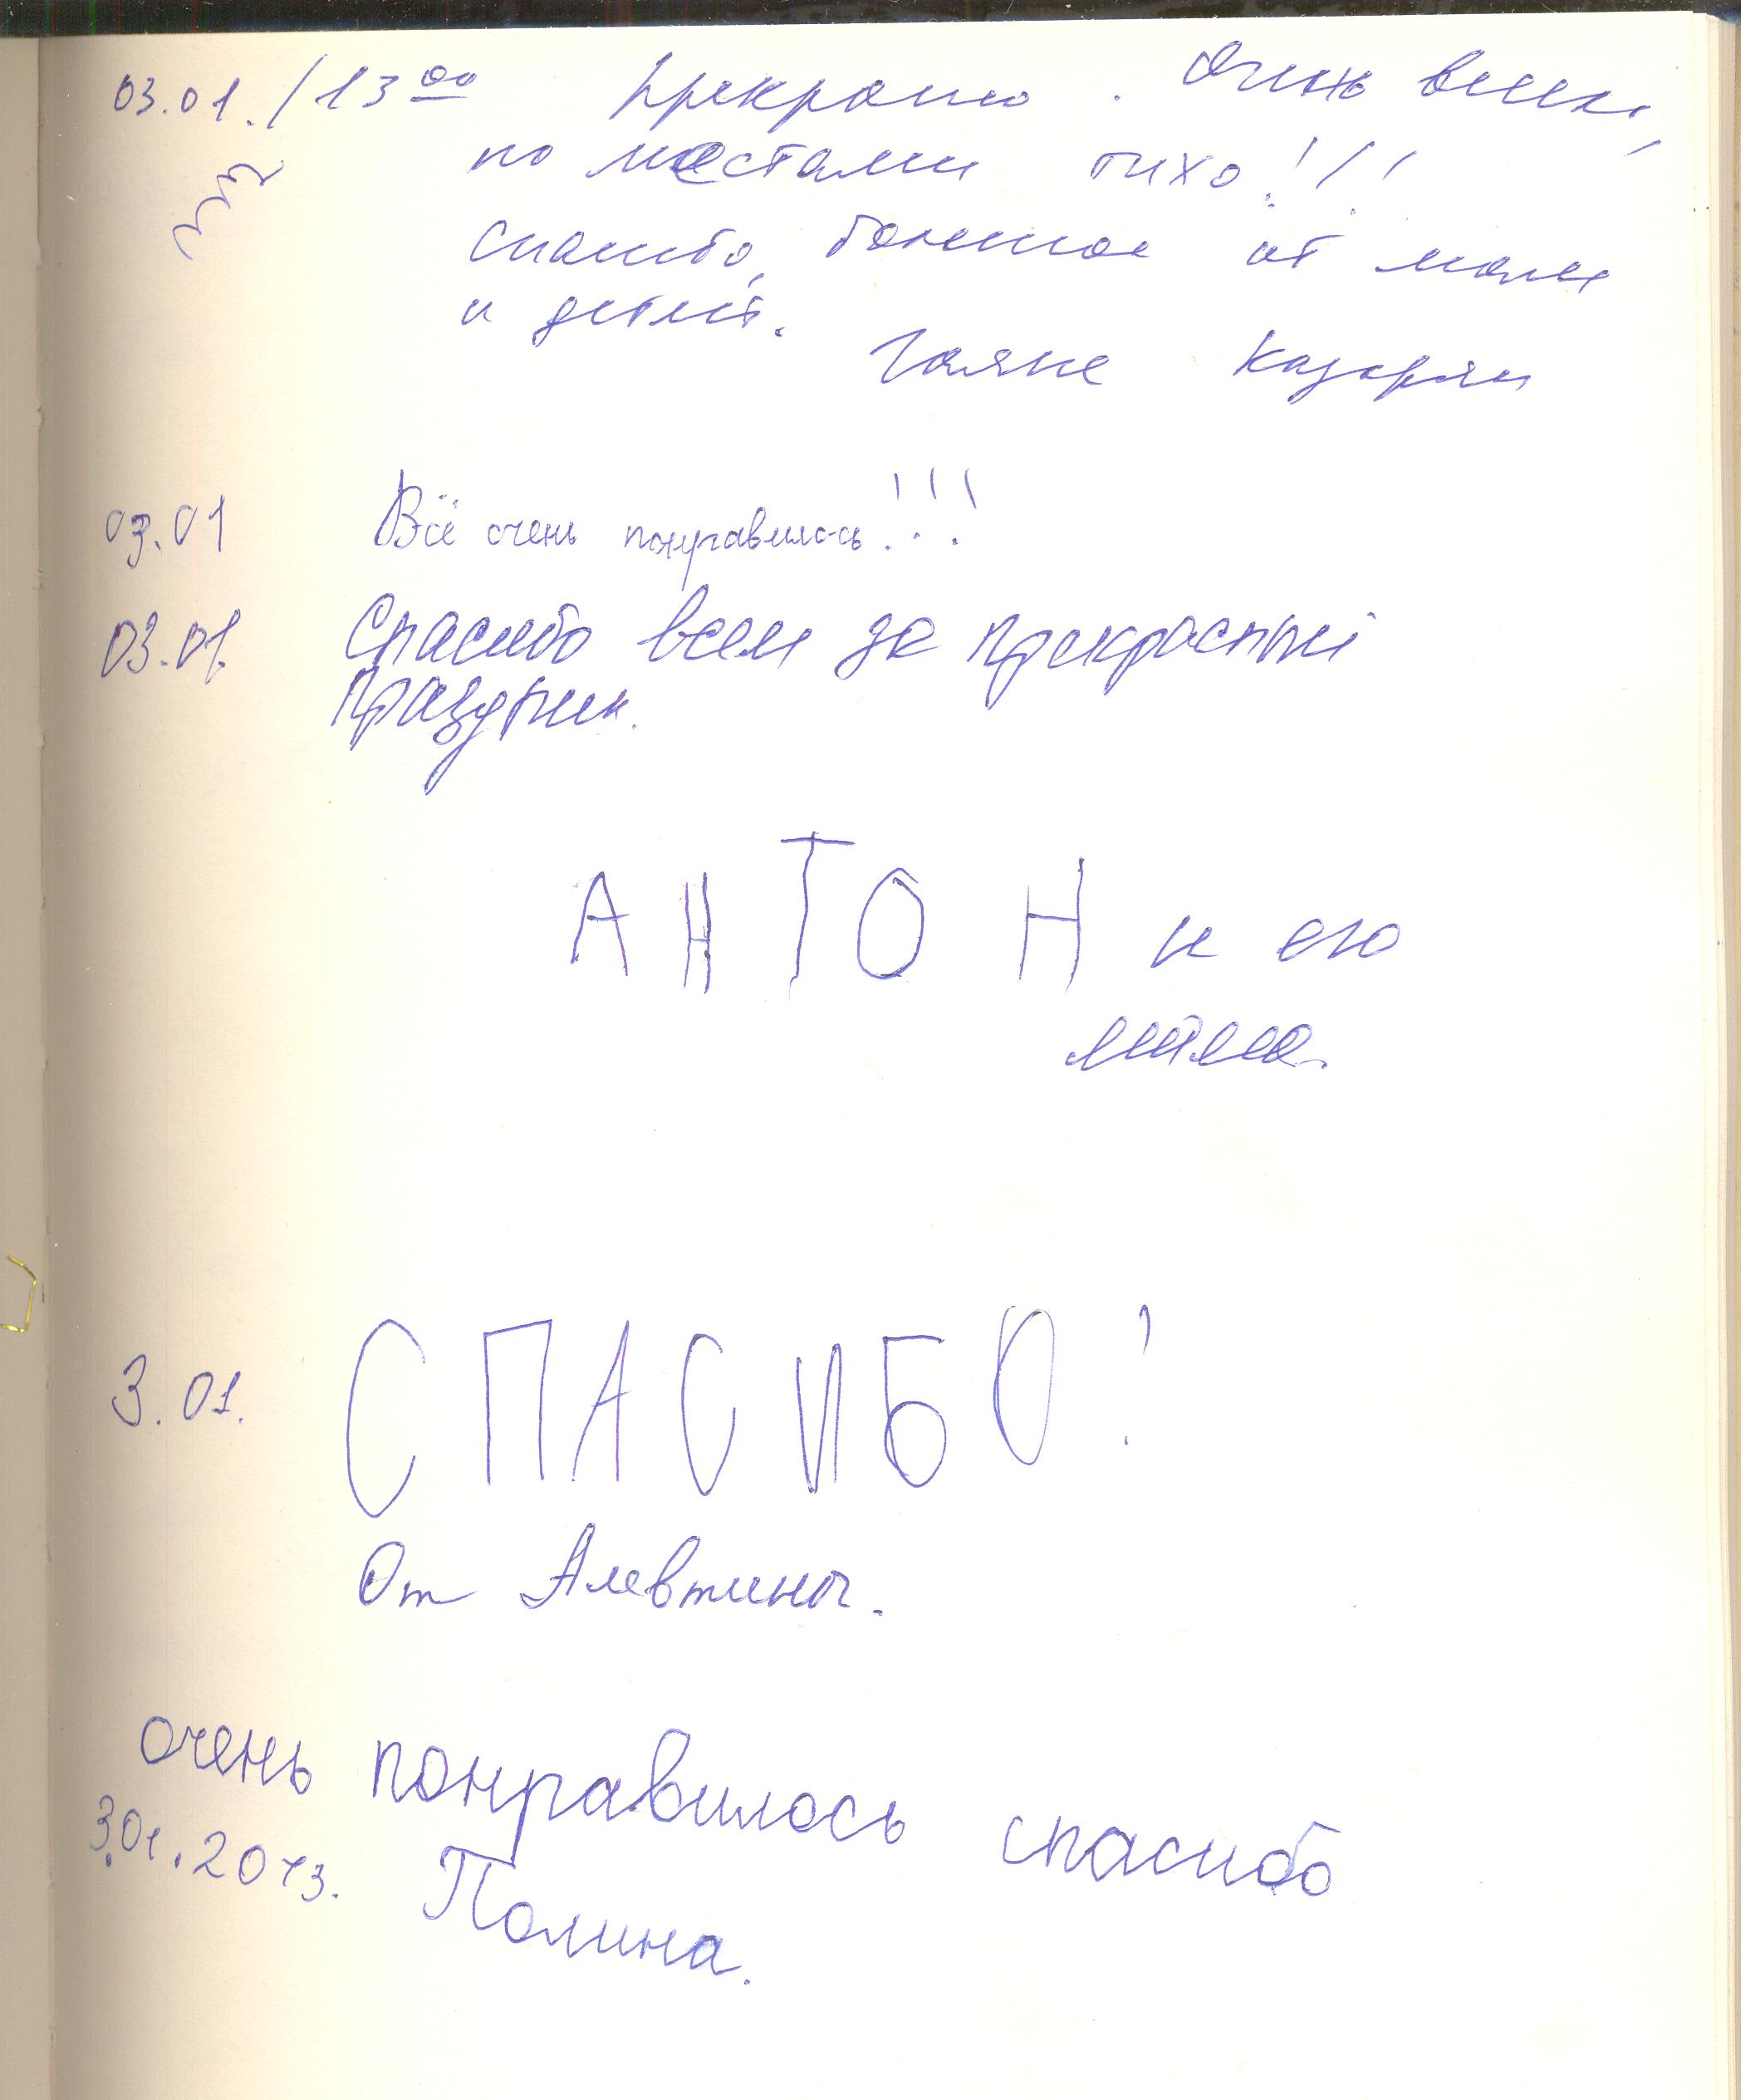 03.01. / 13 00 Прекрасно. Очень весел,
но местами тихо!!!
спасибо, большое от мамы
и детей.
Гаяне Казарян
03.01 Всё очень понравилось!!!
03.01. Спасибо всем за прекрасный
праздник.
АНТОН и его
мама.
3.01. СПАСИБО!
От Алевтины.
очень понравилось спасибо
3.01.2013. Полина.